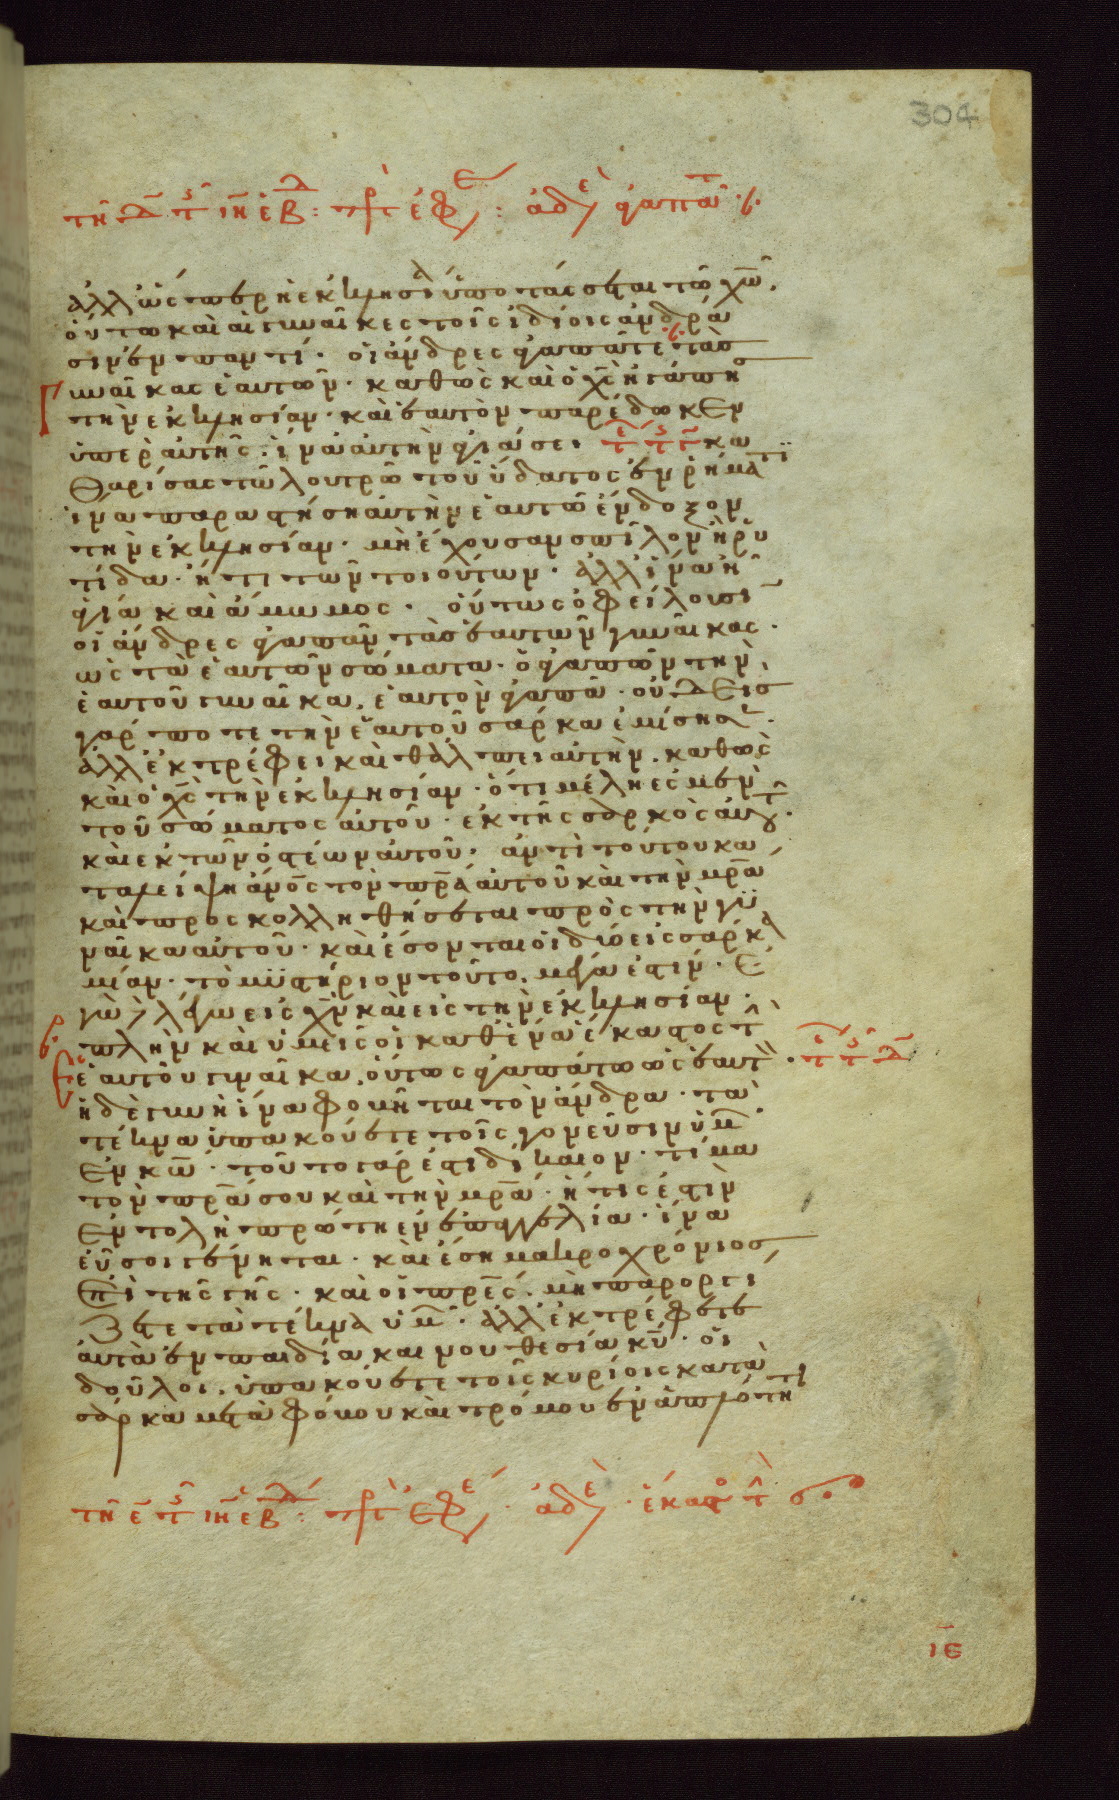 304
τῇ δ τ ιη ἑβδ : πρ ἐφε : ἀδε ἀγαπᾶτ
ἀλλ ὥσπερ ἡ ἐκκλησία ὑποτάσσεται τῶ χω.
οὕτω καὶ αἱ γυναῖκες τοῖς ἰδίοις ἀνδρά
σιν ἐν παντί. οἱ ἄνδρες ἀγαπᾶτε τὰσ
γυναῖκας ἑαυτῶν. καθὼς καὶ ὁ χς ἠγάπησ
τὴν ἐκκλησίαν. καὶ ἑαυτὸν παρέδωκεν
ὑπὲρ αὐτῆς. ἵνα αὐτὴν ἁγιάσει τε τ κα
θαρίσας τῶ λουτρῶ τοῦ ὕδατος ἐν ρήματι
ἵνα παραστήση αὐτὴν ἑαυτῶ ἔνδοξον
τὴν ἐκκλησίαν. μὴ ἔχουσαν σπῖλον ἢ ρυ
τίδα. ἤ τι τῶν τοιούτων. ἀλλ ἵνα ἦ
ἁγία καὶ ἄμωμος. οὕτως ὀφείλουσι
οἱ ἄνδρες ἀγαπᾶν τὰσ ἑαυτῶν γυναῖκας.
ὡς τὰ ἑαυτῶν σώματα. ὁ ἀγαπῶν τὴν
ἑαυτοῦ γυναῖκα, ἑαυτὸν ἀγαπᾶ. οὐδεισ
γάρ ποτε τὴν ἑαυτοῦ σάρκα ἐμίσησ.
ἀλλ ἐκτρέφει καὶ θάλπει αὐτὴν. καθὼς
καὶ ὁ χς τὴν ἐκκλησίαν. ὅτι μέλη ἐσμὲν
τοῦ σώματος αὐτοῦ. ἐκ τῆς σαρκὸς αὐτου.
καὶ ἐκ τῶν ὀστέων αὐτοῦ. ἀντὶ τούτου κα
ταλείψη ἀνος τὸν πρα αὐτοῦ καὶ τὴν μρα
καὶ προσκολληθήσεται πρὸς τὴν γυ
ναῖκα αὐτοῦ. καὶ ἔσονται οἱ δύο εἰς σάρκα
μίαν. τὸ μυστήριον τοῦτο, μέγα ἐστίν. ἐ
γὼ λέγω εἰς χν καὶ εἰς τὴν ἐκκλησίαν.
πλὴν καὶ ὑμεῖς οἱ καθ ἕνα ἕκαστος τ
ἑαυτοῦ γυναῖκα, οὕτως ἀγαπάτω ὡς ἑαυτ. τε τ δ
ἡ δὲ γυνὴ ἵνα φοβῆται τὸν ἄνδρα. τὰ
τέκνα ὑπακούετε τοῖς γονεῦσιν ὑμ
ἐν κω. τοῦτο γάρ ἐστι δίκαιον. τίμα
τὸν πρα σου καὶ τὴν μρα. ἥτις ἐστὶν
ἐντολὴ πρώτη ἐν ἐπαγγελία. ἵνα
εὖ σοι γένηται. καὶ ἔση μακροχρόνιοσ
ἐπὶ τῆς γῆς. καὶ οἱ πρες. μὴ παροργι
ζετε τὰ τέκνα ὑμ. ἀλλ ἐκτρέφετε
αὐτὰ ἐν παιδία και νουθεσία κυ. οἱ
δοῦλοι. ὑπακούετε τοῖς κυρίοις κατὰ
σάρκα μετὰ φόβου καὶ τρόμου ἐν ἁπλότητι
τῇ ε τ ιη ἑβδ : πρ ἐφε. ἀδε. ἕκαστο τ
ιε